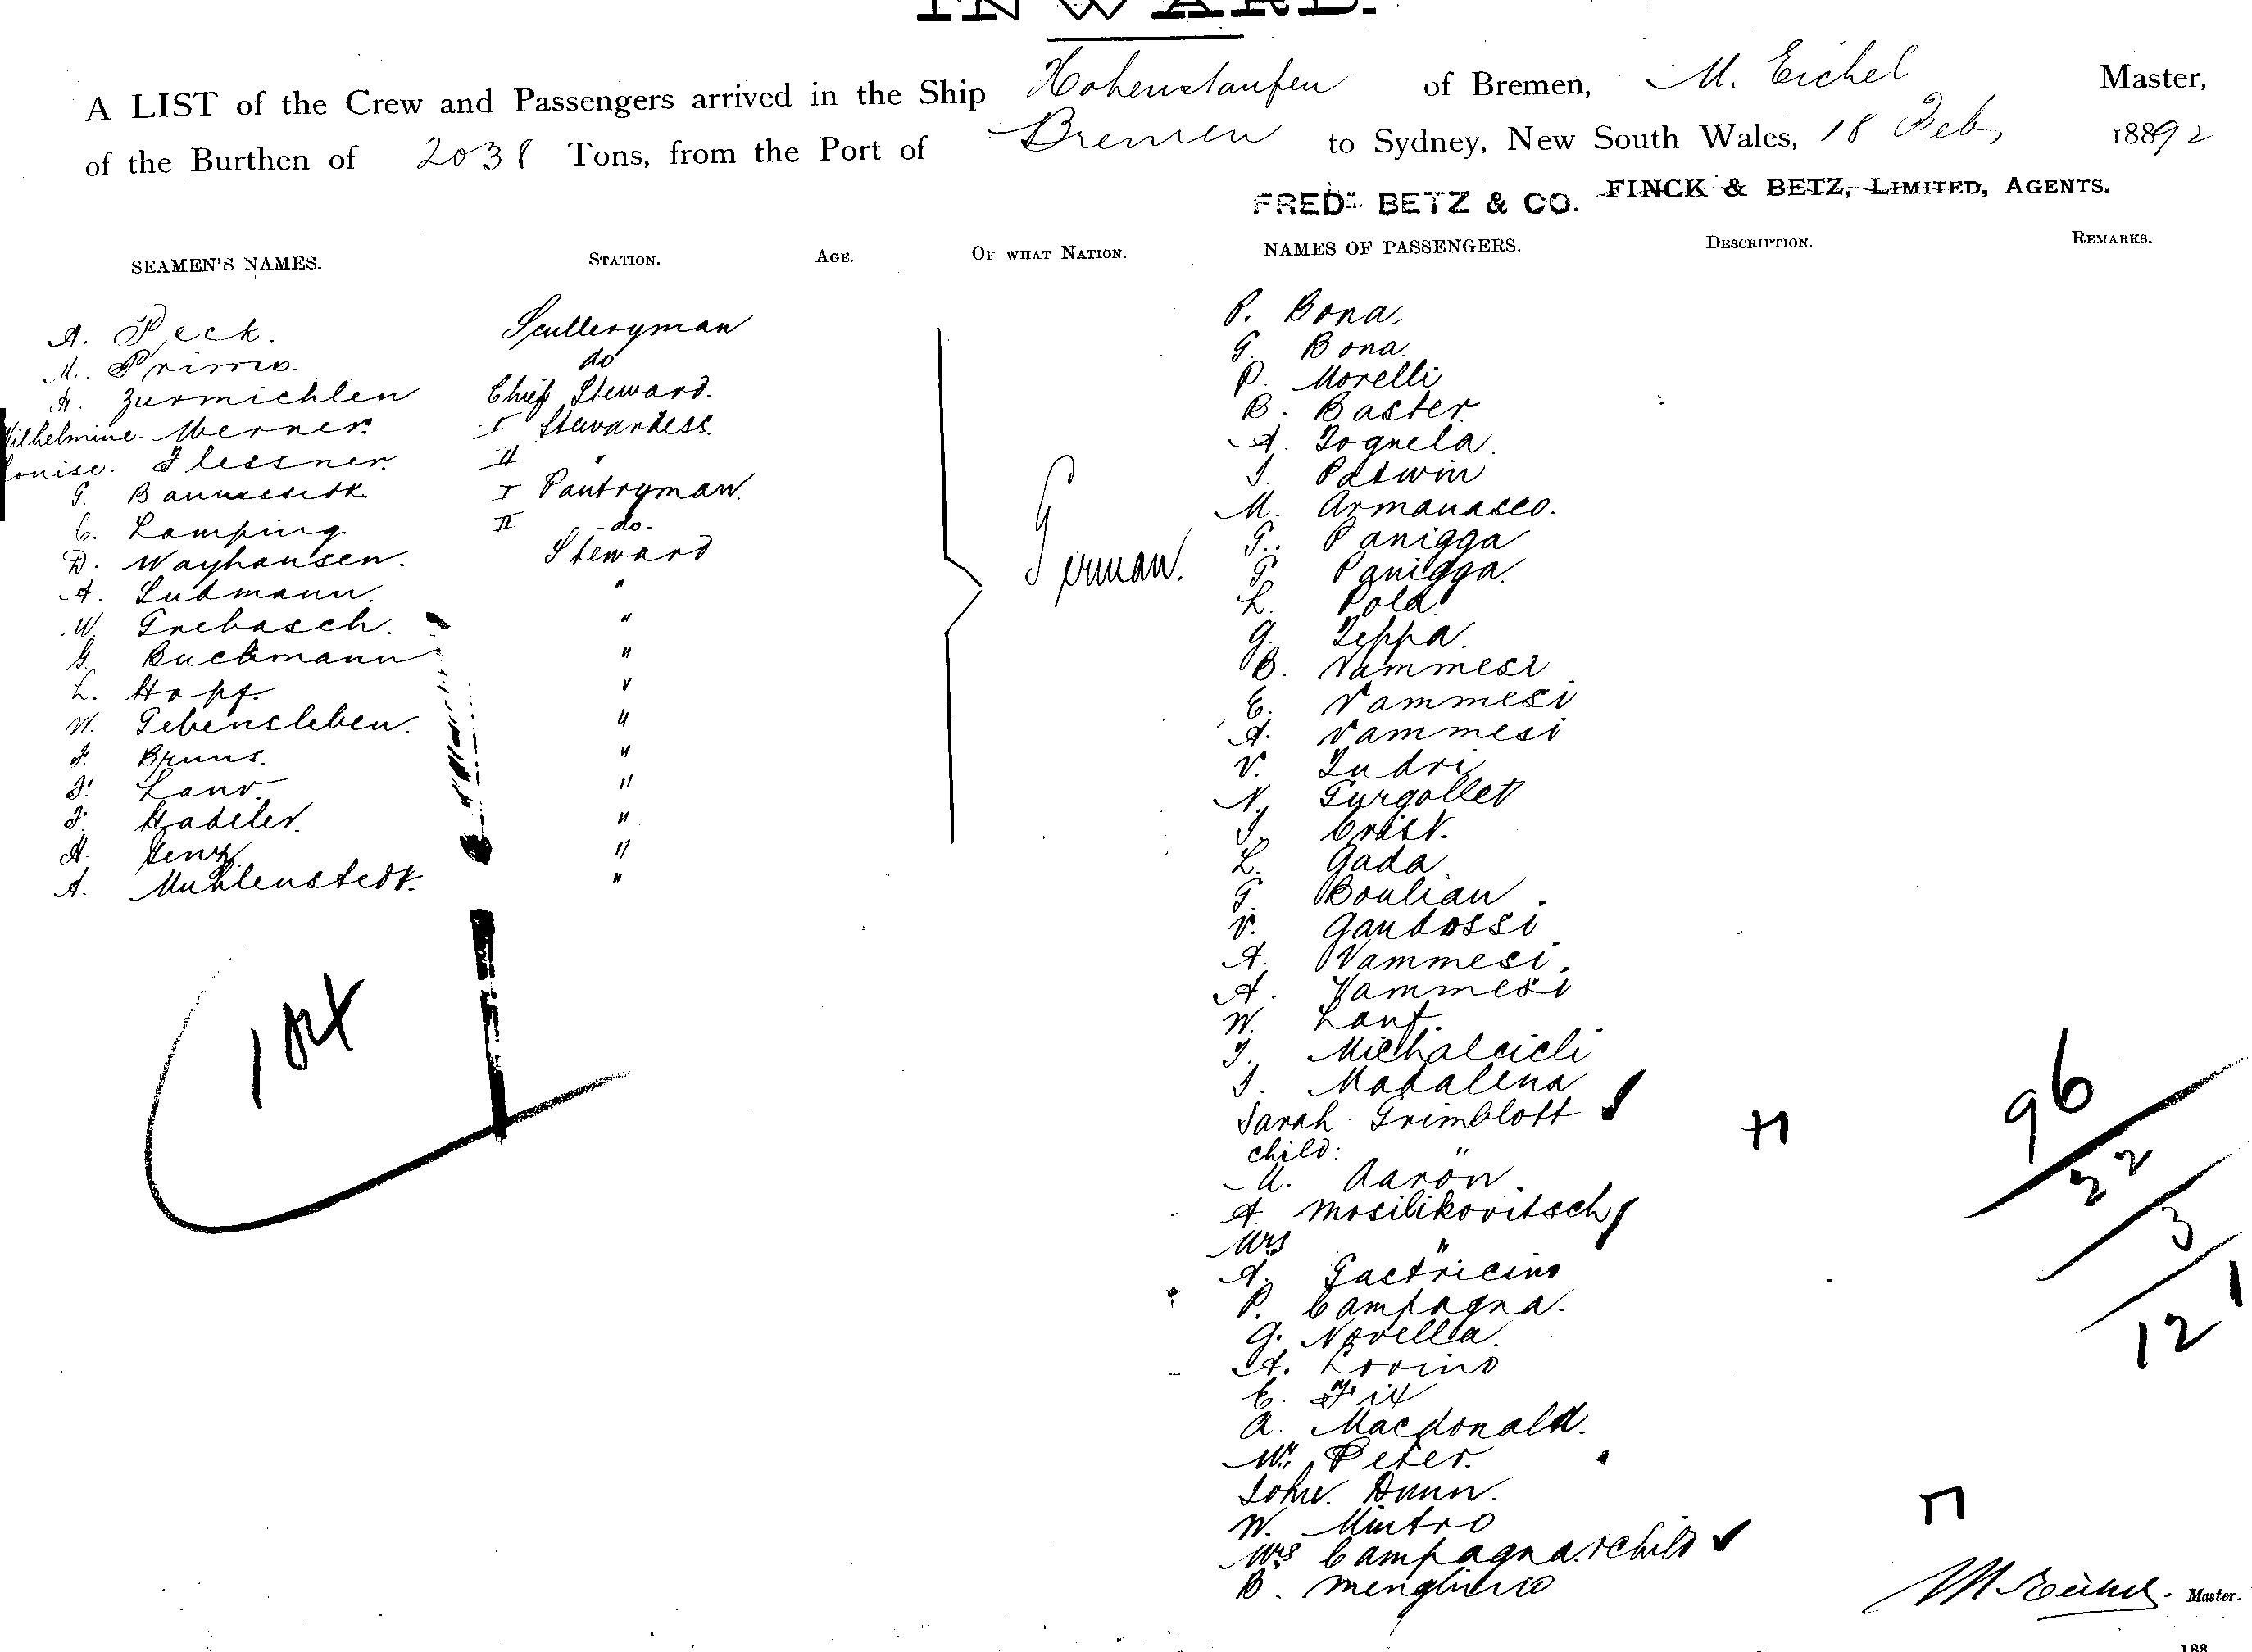 INWARD.
A LIST of the Crew and Passengers arrived in the Ship Hohenstaufen of Bremen, M. Eichel Master,
of the Burthen of 2031 Tons, from the Port of Bremen to Sydney, New South Wales, 18 Feb, 1892
FREDK BETZ & CO. FINCK & BETZ, LIMITED, AGENTS.
SEAMEN'S NAMES. STATION. AGE. OF WHAT NATION.
A. Peck. Sculleryman
M. Primo. do
A. Zurmichlen Chief Steward.
Wilhelmine. Werner. I Stewardess.
Louise. Flessner. II "
G. I Pantryman.
C. Lamping II - do -
D. Wayhausen. Steward
A. Ludmann. "
W. Grebasch. "
G. Buckmann "
L. Hopf. "
W. Gebensleben. "
F. Bruns. "
F. "
F. Hadeler. "
A. "
A. Muhlenstedt. "
German.
104
NAMES OF PASSENGERS. DESCRIPTION. REMARKS.
P. Bona.
G. Bona.
P. Morelli
B. Baster
A. Tognela.
J.
M. Armanasco.
G. Panigga
G. Panigga.
L. Pola
G. Zeppa.
B. Vammesi
E. Vammesi
A. Vammesi
V. Tudri
N. Gurgollet
J. Crist.
L. Gada
G. Boulian
V. Gandossi
A. Vammesi.
A. Vammesi
W. Lanf.
J. Michalcicli
J. Madalena
Sarah Grimblott
child: "
M. Aaron.
A. Mosilikovitsch
Mrs "
A. Gastricino
P. Campagna.
G. Novella.
A. Lovino
E. Fix
A. Macdonald.
W. Peter.
John Dunn.
W. Mintro
Mrs Campagna & child
B.
96
22
3
121
M Eichel. Master.
188